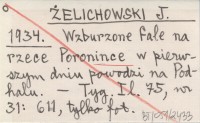 ŻELICHOWSKI J.
1934. Wzburzone fale na
rzece Poronince w pierw-
szym dniu powodzi na Pod-
halu. — Tyg. Il. 75, nr
31: 611, tylko fot.